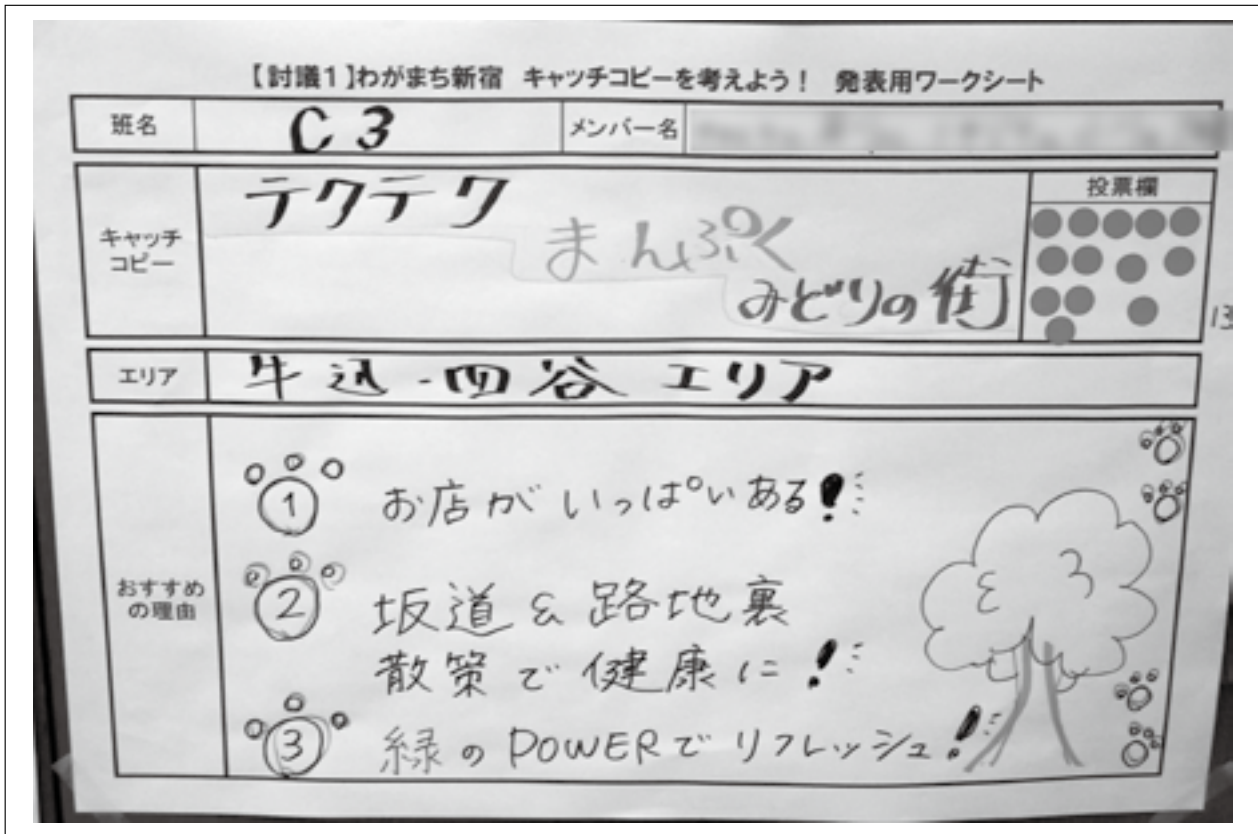 【討議1】わがまち新宿 キャッチコピーを考えよう! 発表用ワークシート
班名 C3 メンバー名
キャッチコピー
テクテク
まんぷく
みどりの街
投票欄
13
エリア 牛込・四谷エリア
おすすめの理由
① お店がいっぱいある!
② 坂道&路地裏
散策で健康に!
③ 緑のPOWERでリフレッシュ!